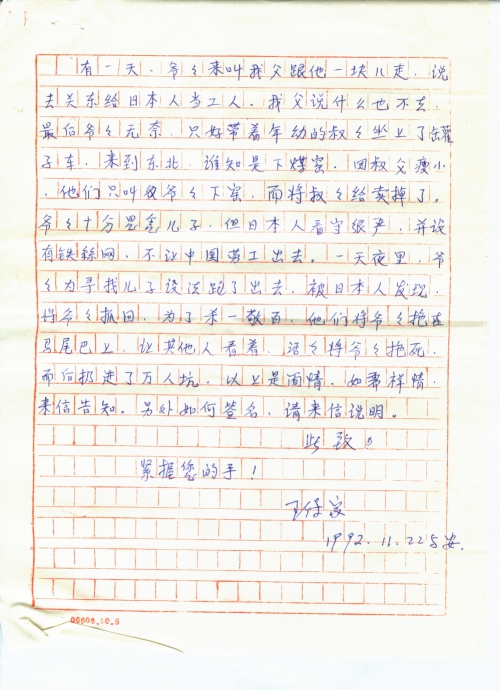 有一天，爷々来叫我父跟他一块儿走，说
去关东给日本人当工人。我父说什么也不去，
最后爷々无奈，只好带着年幼的叔々坐上了闷罐
子车，来到东北，谁知是下煤窑。因叔父瘦小
，他们只叫我爷々下窑，而将叔々给卖掉了。
爷々十分思念儿子，但日本人看守很严，并设
有铁絲网，不让中国劳工出去。一天夜里，爷
々为寻找儿子没法跑了出去，被日本人发现，
将爷々抓回，为了杀一儆百，他们将爷々拖在
马尾巴上，让其他人看着，活々将爷々拖死，
而后扔进了万人坑。以上是面情，如需祥情，
来信告知。另处如何签名，请来信说明。
此致，
紧握您的手！
1992.11.22
00608.80.5